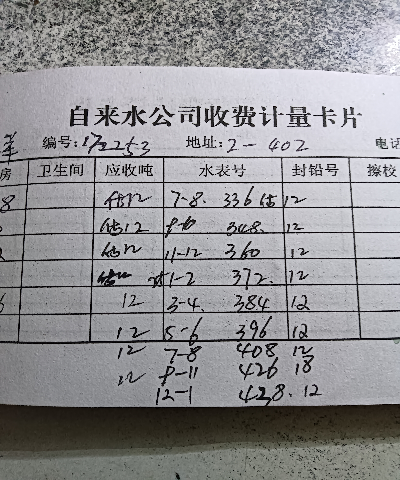 自来水公司收费计量卡片
编号: 172253 地址: 2-402 电话
房 卫生间 应收吨 水表号 封铅号 擦校
8 估12 7-8. 336估 12
估12 348. 12
估12 11-12 360 12
1-2 372. 12
12 3-4. 384 12
12 5-6 396 12
12 7-8 408 12
12 9-11 426 18
12-1 428. 12